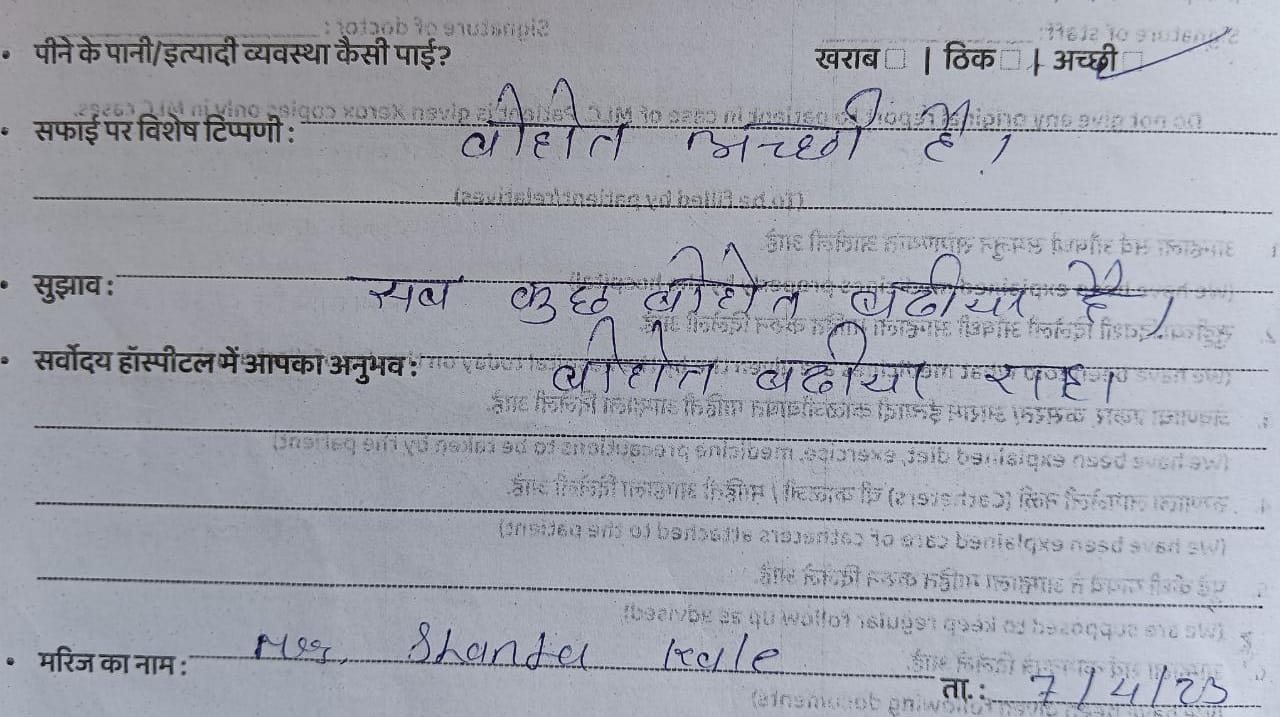 • पीने के पानी/इत्यादी व्यवस्था कैसी पाई? खराब □ | ठिक □ | अच्छी □
• सफाई पर विशेष टिप्पणी : बोहोत अच्छी है।
• सुझाव : सब कुछ बोहोत बढीया है।
• सर्वोदय हॉस्पीटल में आपका अनुभव : बोहोत बढीया राहा।
• मरिज का नाम : Mrs. Shanta Kale
ता.: 7/4/23